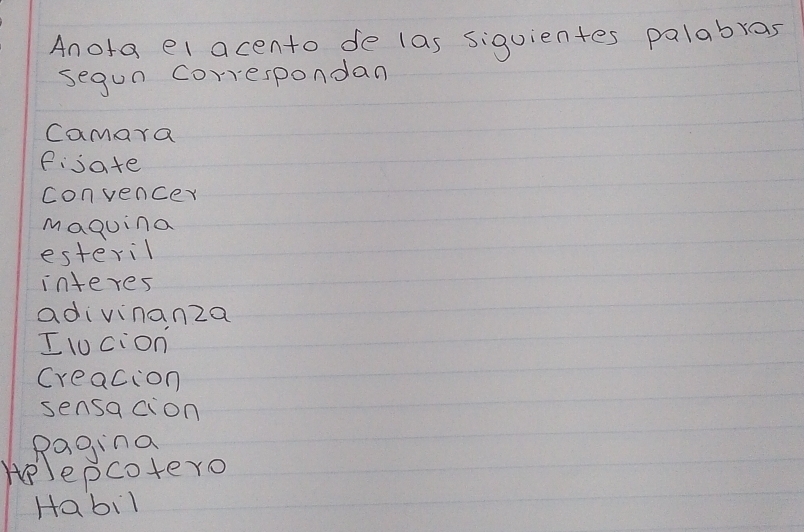 Anota el acento de las siguientes palabras
segun correspondan
Camara
fijate
convencer
Maquina
esteril
interes
adivinanza
Ilucion
Creacion
sensacion
Pagina
Helepcotero
Habil